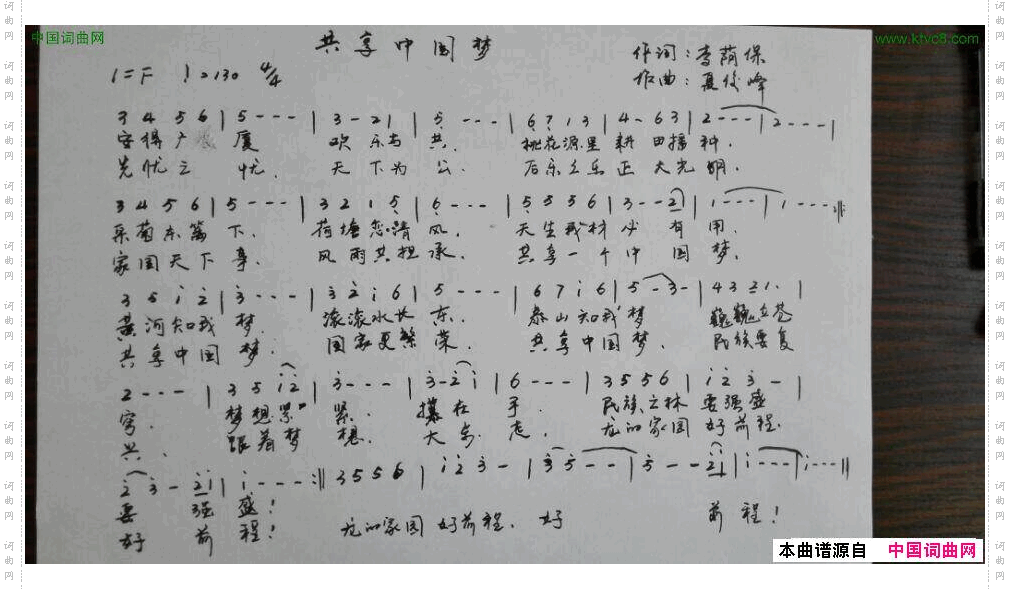 中国词曲网
www.ktvc8.com
共享中国梦
1=F ♩=130 4/4
作词：李荫保
作曲：夏俊峰
3 4 5 6 | 5 - - - | 3 - 2 1 | 5 - - - | 6 7 1 3 | 4 - 6 3 | 2 - - - | 2 - - - |
安得广 厦 欢 乐与 共. 桃花源里 耕 田播 种.
先忧之 忧. 天 下为 公. 后乐之乐 正 大光 明.
3 4 5 6 | 5 - - - | 3 2 1 5 | 6 - - - | 5 5 5 6 | 3 - - 2 | 1 - - - | 1 - - - :||
采菊东篱 下. 荷塘 清 风. 天生我材 必 有 用.
家国天下 事. 风雨共担 承. 共享一个 中 国 梦.
3 5 i 2 | 3 - - - | 3 2 i 6 | 5 - - - | 6 7 i 6 | 5 - 3 - | 4 3 2 1 . |
黄河知我 梦. 滚滚水长 东. 泰山知我 梦 巍巍立苍
共享中国 梦. 国家更繁 荣. 共享中国 梦. 民族要复
2 - - - | 3 5 i 2 | 3 - - - | 3 - 2 i | 6 - - - | 3 5 5 6 | i 2 3 - |
穹. 梦想紧 紧. 攥 在 手. 民族之林 要强盛
兴. 跟着梦 想. 大 步 走. 龙的家园 好前程.
2 3 - 2 1 | i - - - :|| 3 5 5 6 | i 2 3 - | 3 5 - - | 5 - - 2 i | i - - - | i - - - ||
要 强 盛！
好 前 程！ 龙的家园 好前程. 好 前 程！
本曲谱源自 中国词曲网